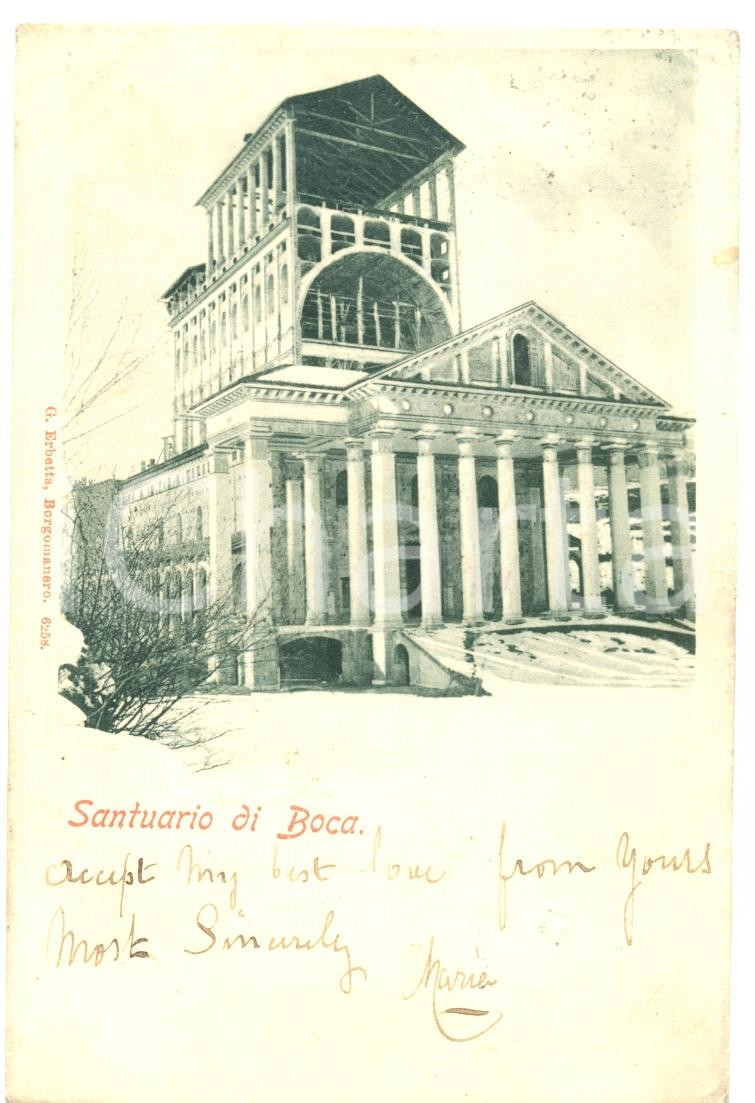 G. Erbetta, Borgomanero. 6258.
charta
Santuario di Boca.
accept my best love from Yours
Most Sincerely
Marie